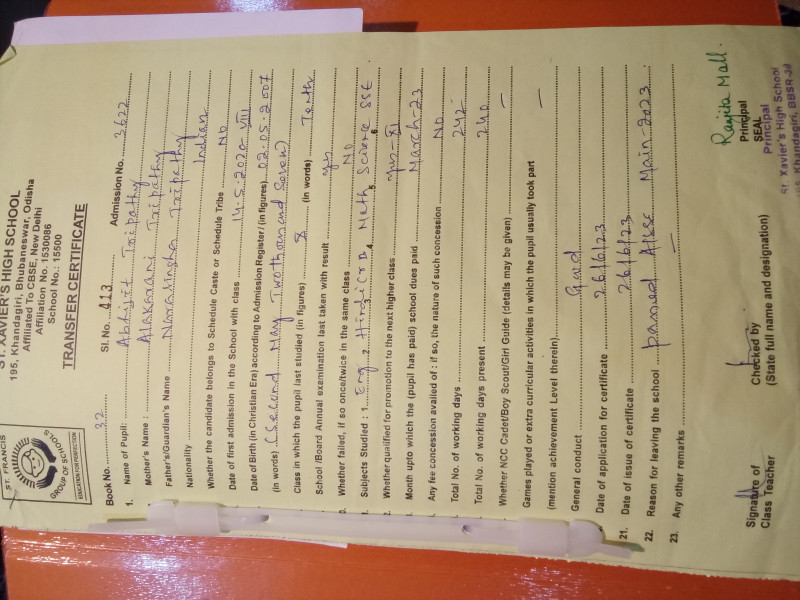 ST. XAVIER'S HIGH SCHOOL
195, Khandagiri, Bhubaneswar, Odisha
Affiliated To CBSE, New Delhi
Affiliation No. 1530086
School No.: 15500
TRANSFER CERTIFICATE
ST. FRANCIS
GROUP OF SCHOOLS
EDUCATION FOR PERFECTION
Book No. 32 Sl. No. 413 Admission No. 3622
1. Name of Pupil: Abhijit Tripathy
Mother's Name: Alakarani Tripathy
Father's/Guardian's Name Narasingha Tripathy
Nationality Indian
Whether the candidate belongs to Schedule Caste or Schedule Tribe No
Date of first admission in the School with class 14-5-2020-VIII
Date of Birth (in Christian Era) according to Admission Register/ (in figures) 02-05-2007
(in words) (Second May Two thousand Seven)
Class in which the pupil last studied (in figures) X (in words) Tenth
School /Board Annual examination last taken with result yes
0. Whether failed, if so once/twice in the same class No
Subjects Studied : 1. Eng 2. Hindi Cr B 3. 4. Math 5. Science 6. SSt
2. Whether qualified for promotion to the next higher class yes-XI
Month upto which the (pupil has paid) school dues paid March-23
Any fee concession availed of : if so, the nature of such concession No
Total No. of working days 242
Total No. of working days present 240
Whether NCC Cadet/Boy Scout/Girl Guide (details may be given) —
Games played or extra curricular activities in which the pupil usually took part
(mention achievement Level therein) —
General conduct Good
Date of application for certificate 26/6/23
21. Date of issue of certificate 26/6/23
22. Reason for leaving the school passed AISSE Main-2023
23. Any other remarks —
Signature of
Class Teacher
Checked by
(State full name and designation)
Rajita Mall.
Principal
SEAL
Principal
St. Xavier's High School
Khandagiri, BBSR-30